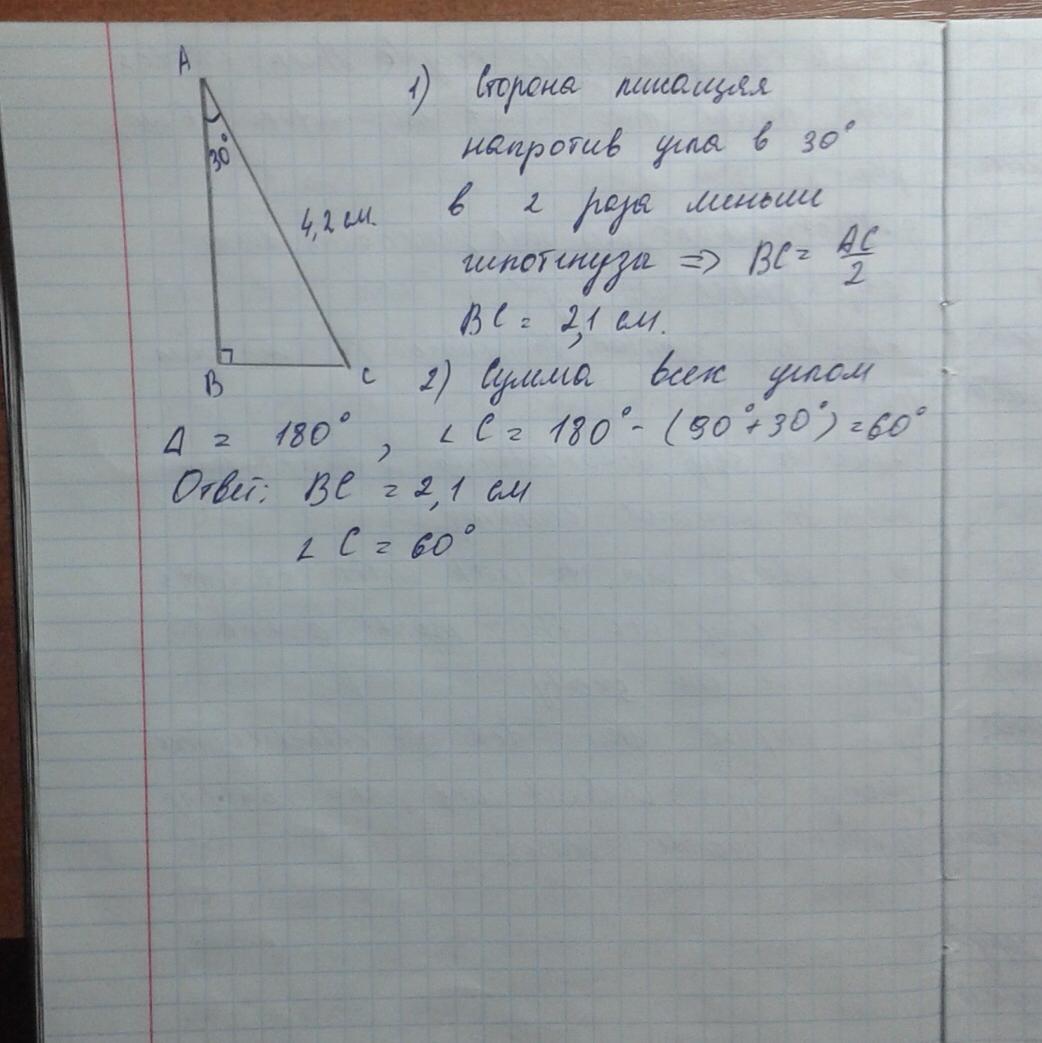 A
30°
4,2 см.
B
C
1) Сторона лижащяя
напротив угла в 30°
в 2 раза меньши
гипотенуза => BC = AC/2
BC = 2,1 см.
2) Сумма всех углом
Δ = 180°, ∠C = 180° - (90° + 30°) = 60°
Ответ: BC = 2,1 см
∠C = 60°